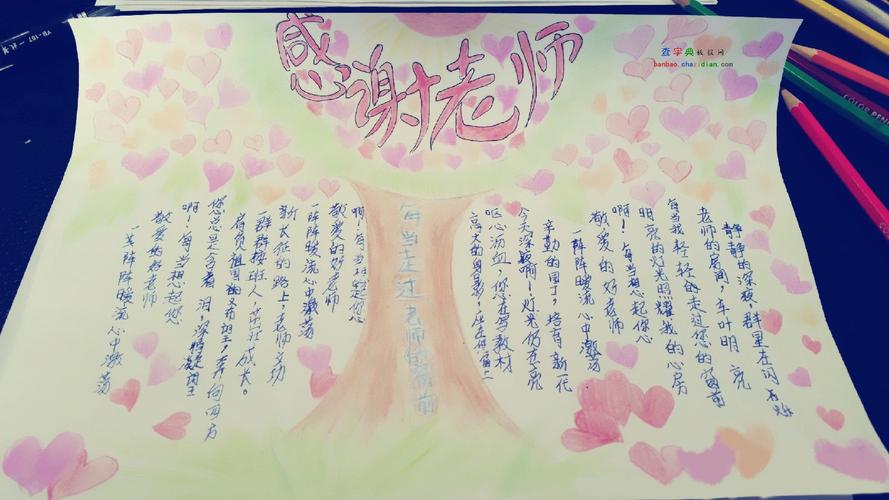 感谢老师
查字典板报网
banbao.chazidian.com
静静的深夜,群星在闪
老师的房间,车叶明亮
每当我轻轻的走过您的窗前
明亮的灯光照耀我的心房
啊!每当想起你
敬爱的好老师
一阵阵暖流心中激荡
辛勤的园丁,培育新一代
今天深夜啊!灯光仍在亮
呕心沥血,你在写教材
高大的身影,在窗上
每当走过老师的窗前
啊!每当想起你
敬爱的好老师
一阵阵暖流心中激荡
新长征的路上,老师立功
一群群接班人,茁壮成长。
肩负祖国的希望!奔向四方
您总是含着泪,深情凝望
啊!每当想起您
敬爱的好老师
一阵阵暖流心中激荡